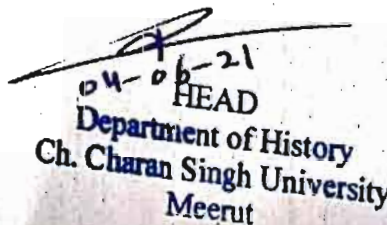 04-06-21
HEAD
Department of History
Ch. Charan Singh University
Meerut